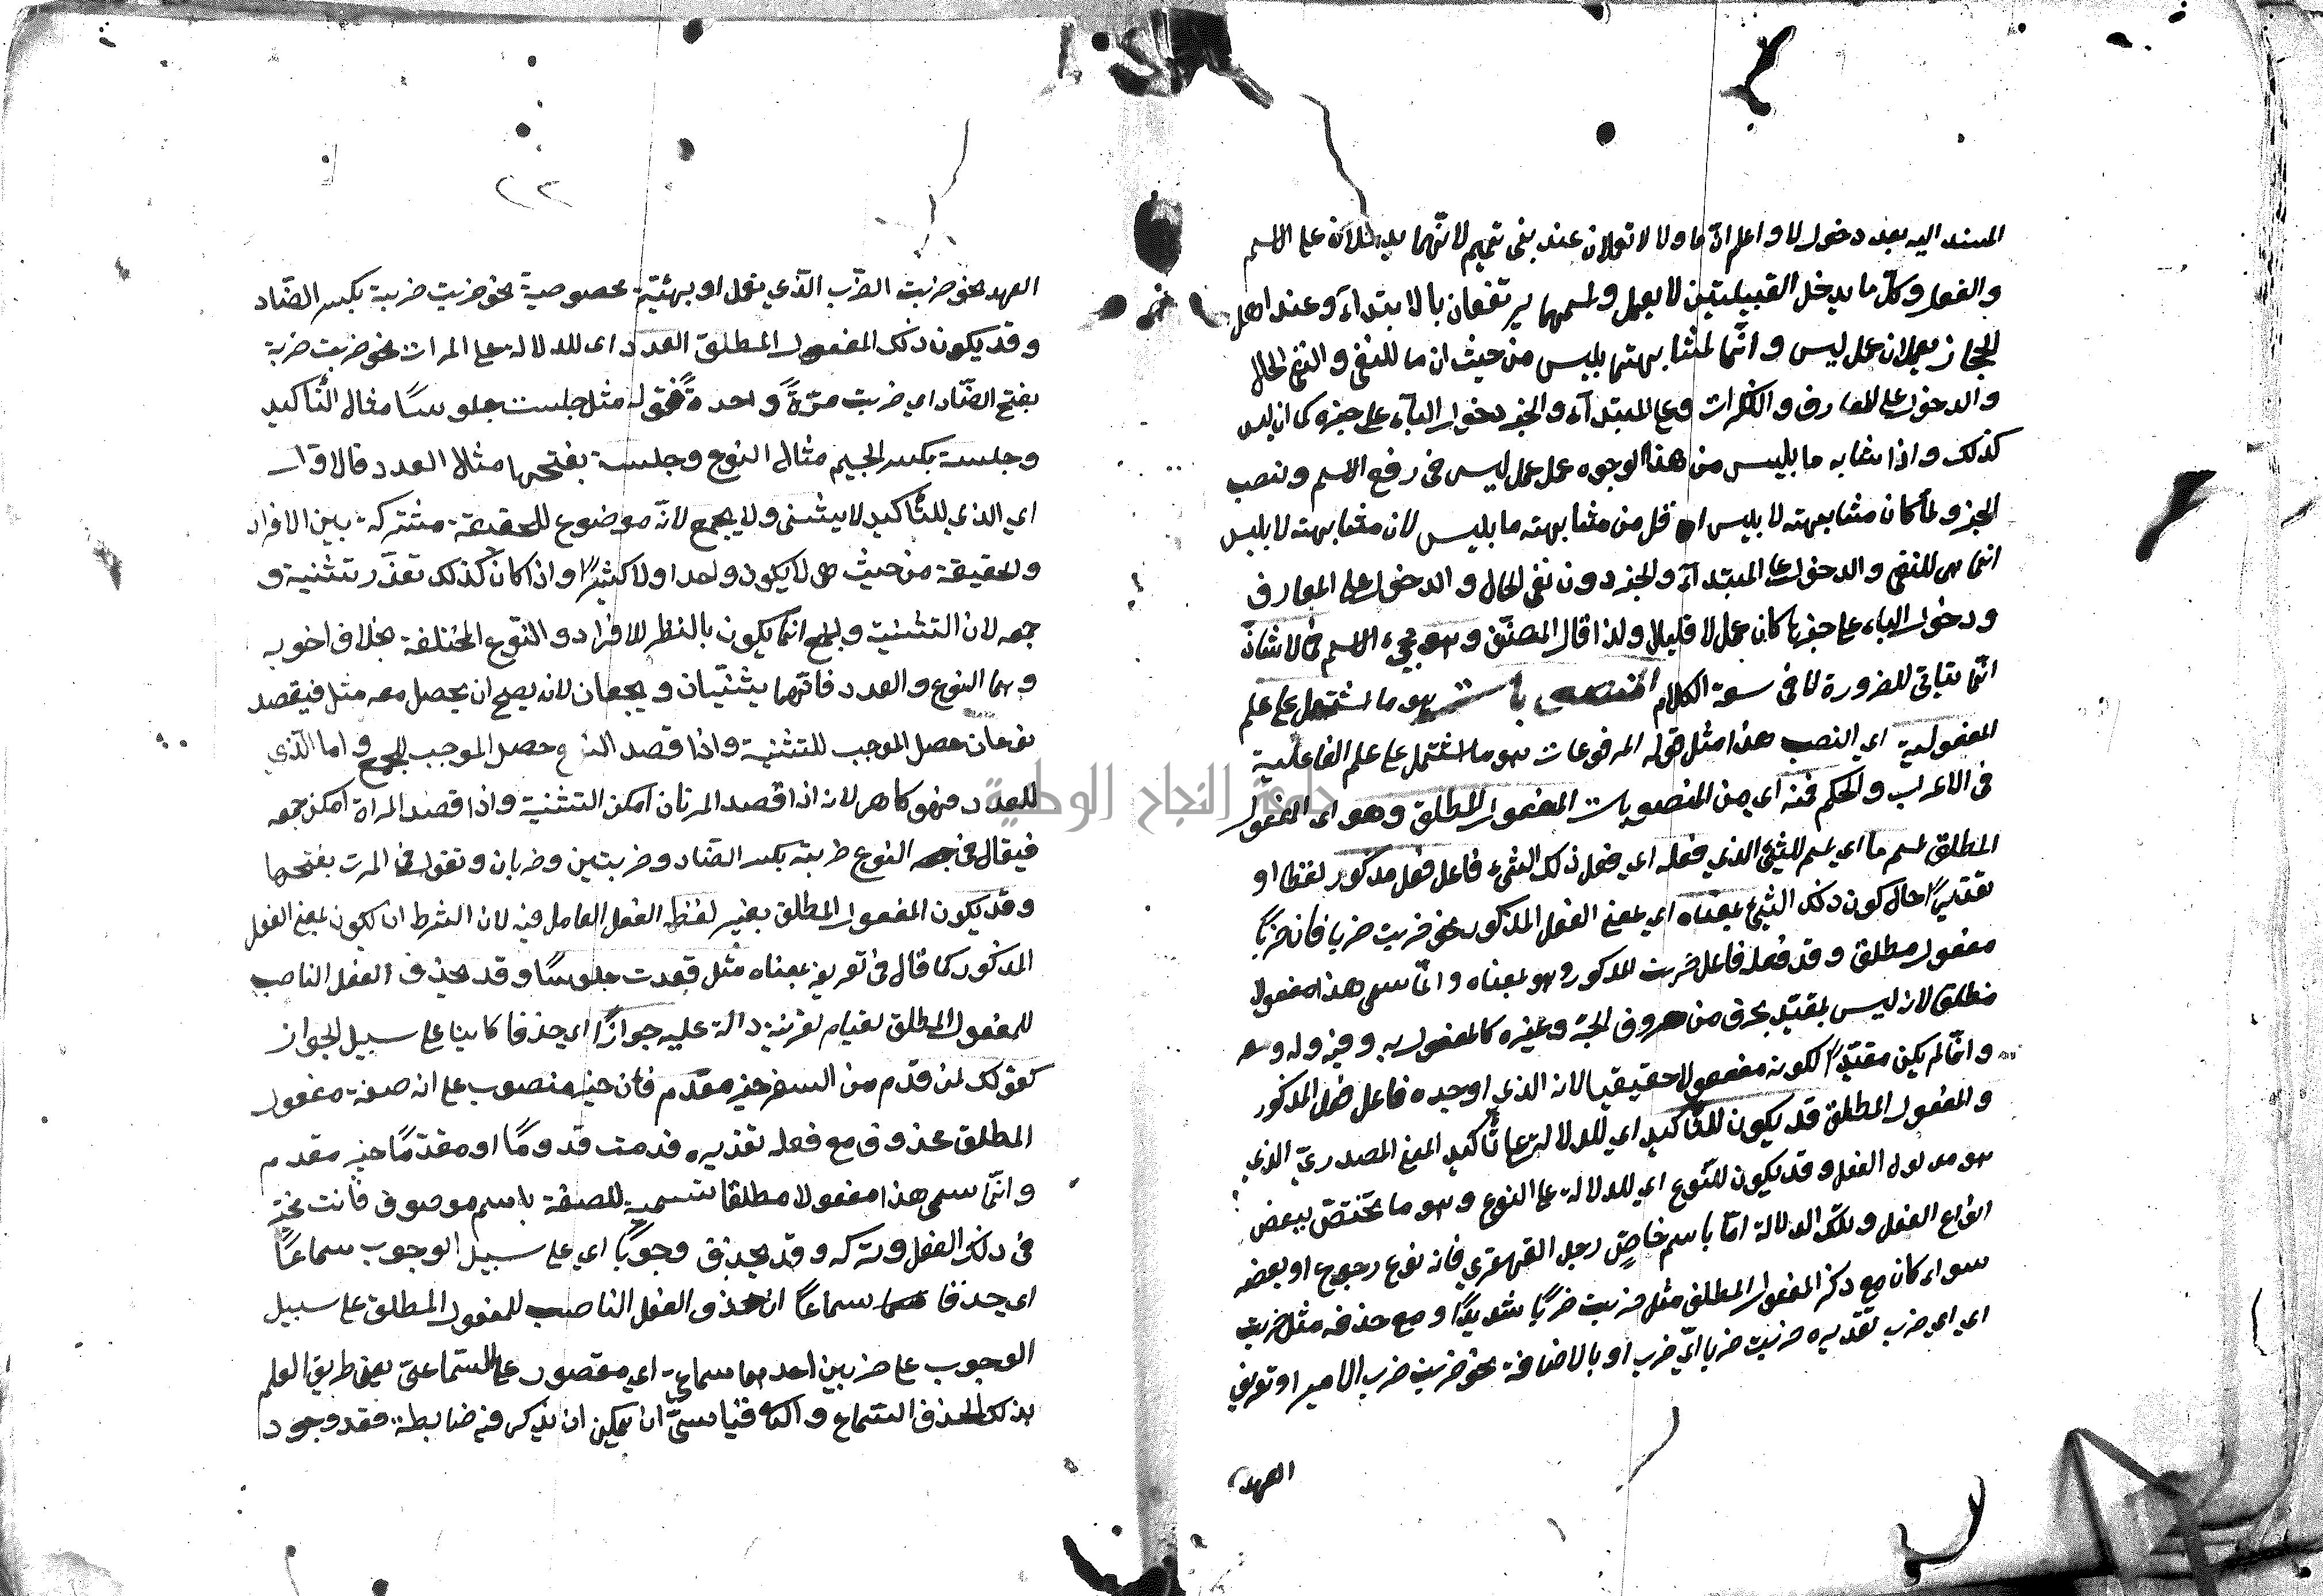 المسند اليه بعد دخول لا واعلم ان ما ولا لا تعملان عند بنى تميم لانهما يدخلان على الاسم
والفعل وكل ما يدخل القبيلتين لا يعمل واسمهما يرتفعان بالابتداء وعند اهل
الحجاز يعملان عمل ليس وانما لمشابهتهما بليس من حيث ان ما للنفى والنفى الحال
والدخول على المعارف والنكرات وعلى المبتدآء والخبر ودخول البآء على خبره كما ان ليس
كذلك واذا شابه ما بليس من هذا الوجوه عمل عمل ليس فى رفع الاسم ونصب
الخبر ولما كان مشابهته لا بليس اقل من مشابهته ما بليس لان مشابهته لا بليس
انما هى للنفى والدخول على المبتدآء والخبر دون نفى الحال والدخول على المعارف
ودخول الباء على خبرها كان عمل لا قليلا ولذا قال المصنف وهو مجىء الاسم فى لا شاذ
انما يتأتى للضرورة لا فى سعة الكلام المنصوبات هو ما اشتمل على علم
المفعولية اى النصب هذا مثل قوله المرفوعات هو ما اشتمل على علم الفاعلية
فى الاعراب والحكم فمنه اى من المنصوبات المفعول المطلق وهو اى المفعول
المطلق اسم ما اى اسم للشئ الذي فعله اى فعل ذلك الشىء فاعل فعل مذكور لفظا او
تقديرًا حال كون ذلك الشئ بمعناه اى بمعنى الفعل المذكور نحو ضربت ضربا فانه ضربًا
مفعول مطلق وقد فعله فاعل ضربت المذكور وهو بمعناه وانما سمى هذا مفعولا
مطلق لانه ليس بمقيّد بحرف من حروف الجرّ وغيره كالمفعول به وفيه وله ومعه
وانما لم يكن مقيّدًا لكونه مفعولا حقيقيا لانه الذي اوجده فاعل فعل المذكور
والمفعول المطلق قد يكون للتأكيد اى للدلالة على تأكيد المعنى المصدريّ الذي
هو مدلول الفعل وقد يكون للنوع اى للدلالة على النوع وهو ما يختصّ ببعض
انواع الفعل وتلك الدلالة امّا باسم خاصٍّ رجل القهقري فانه نوع رجوع او بعضه
سواء كان مع ذكر المفعول المطلق مثل ضربت ضربًا شديدًا ومع حذفه مثل ضربت
اي اي ضرب تقديره ضربت ضربا ايّ ضرب او بالاضافة نحو ضربت ضرب الامير او تعريف
العهد
٢٣
العهد نحو ضربت الضّرب الّذي يعمل او بهيئة مخصوصية نحو ضربت ضربة بكسر الضّاد
وقد يكون ذلك المفعول المطلق العدد اى للدلالة على المرات نحو ضربت ضربة
بفتح الضّاد اى ضربت مرّةً واحدةً فقوله مثل جلست جلوسًا مثال التّأكيد
وجلسة بكسر الجيم مثال النوع وجلسة بفتحها مثلا العدد فالاول
اي الذي للتّأكيد لا يثنى ولا يجمع لانّه موضوع للحقيقة مشتركة بين الافراد
والحقيقة من حيث هى لا يكون واحدا ولا كثيرًا واذا كان كذلك تعذّر تثنية و
جمعه لان التثنية والجمع انما يكون بالنظر للافراد والنوع المختلفة بخلاف اخويه
وهما النوع والعدد فانّهما يثنّيان ويجمعان لانه يصح ان يحصل معه مثل فيقصد
نوعان حصل الموجب للتثنية واذا قصد النوع حصل الموجب للجمع واما الّذي
للعدد فهو كاهر لانه اذا قصد المرتان امكن التثنية واذا قصد المراة امكن جمعه
فيقال فى جمع النوع ضربته بكسر الضّاد وضربتين وضربان وتقول فى المرت بفتحها
وقد يكون المفعول المطلق بغير لفظه الفعل العامل فيه لان الشرط ان يكون بمعنى الفعل
المذكور كما قال فى تعريفه بمعناه مثل قعدت جلوسًا وقد يحذف الفعل الناصب
للمفعول المطلق لقيام لقرينة دالة عليه جوازًا اى حذفا كاينا على سبيل الجواز
كقولك لمن قدم من السفر خير مقدم فان خير منصوب على انه صفة مفعول
المطلق محذوف مع فعله تقديره قدمت قدومًا او مقدمًا خير مقدم
وانّما سمى هذا مفعولا مطلقا تسمية للصفة باسم موصوف فانت مخير
فى ذلك الفعل وتركه وقد يحذف وجوبًا اي على سبيل الوجوب سماعًا
اى حذفا سماعًا ان حذف الفعل الناصب للمفعول المطلق على سبيل
الوجوب على ضربين احدهما سماعى اي مقصور على السّماعىّ يعنى طريق العلم
بذلك الحذف السّماع و قياسىّ ان يمكن ان يذكر فيه ضابطة فقد وجود
جامعة النجاح الوطنية